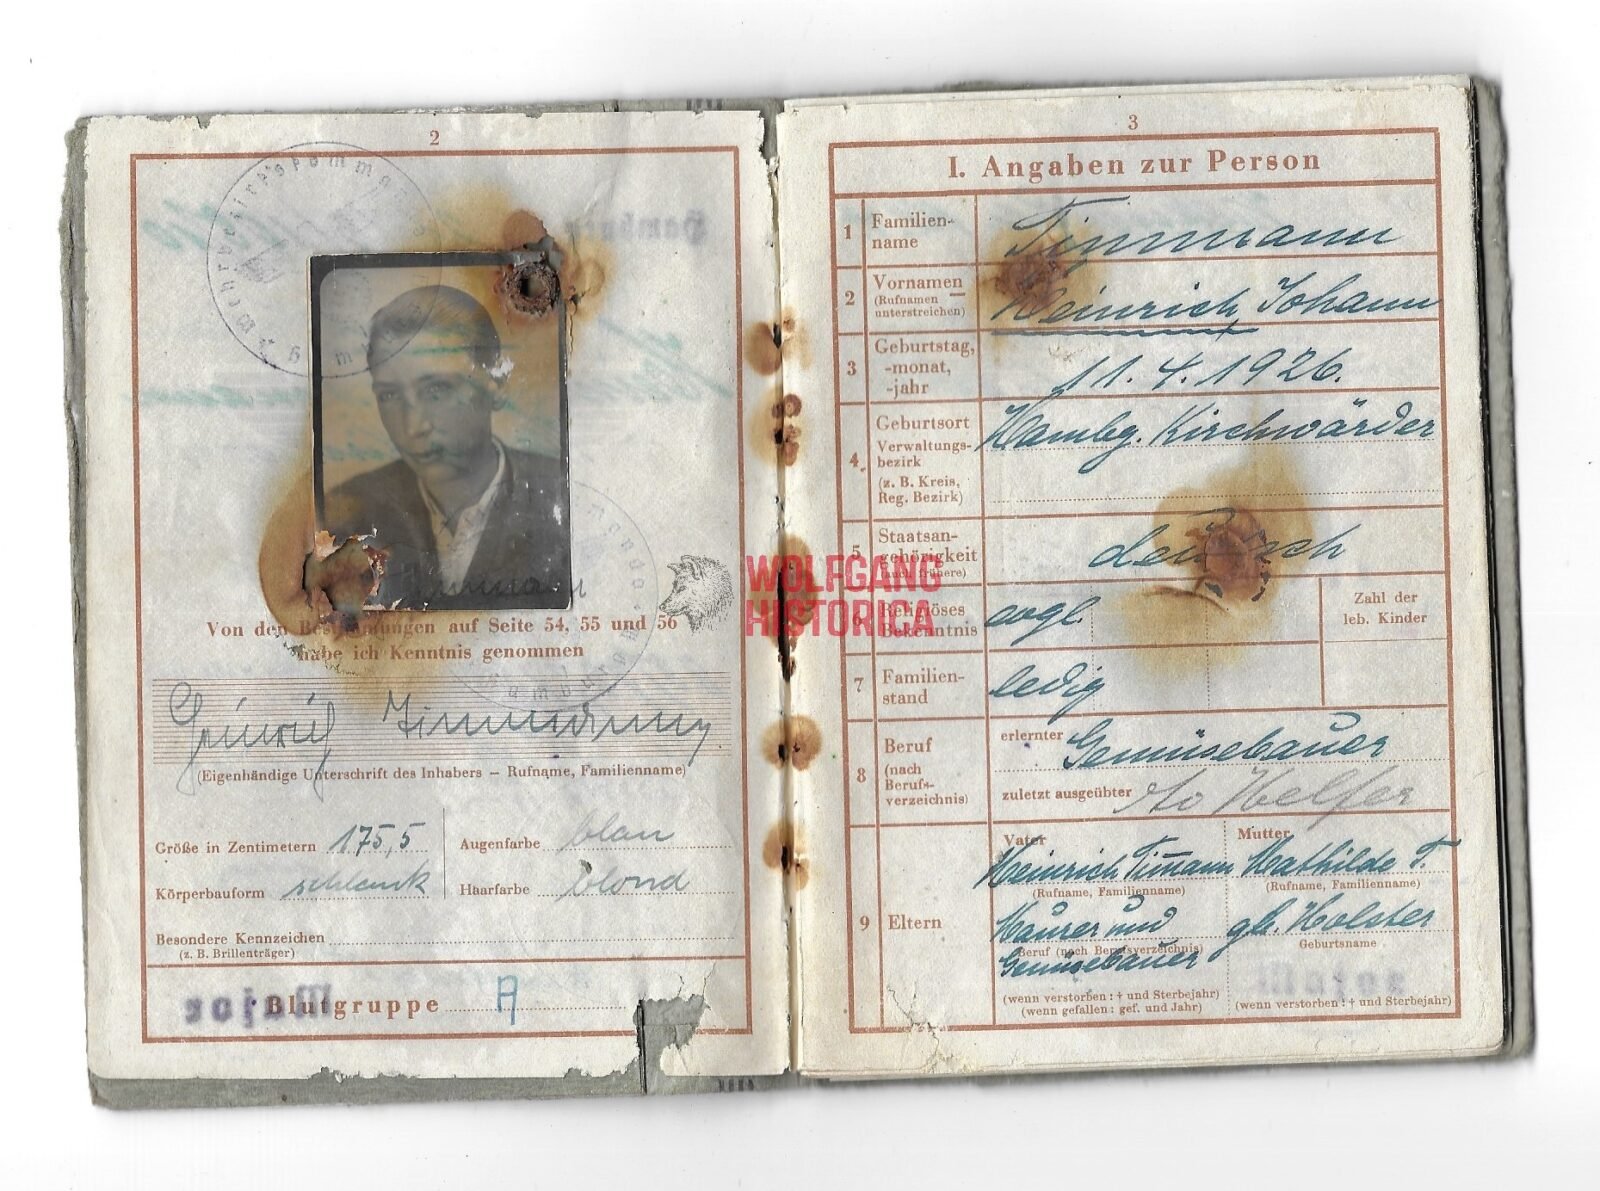 2
Wehrbezirkskommando
Hamburg
Von den Bestimmungen auf Seite 54, 55 und 56
habe ich Kenntnis genommen
Heinrich Timmann
(Eigenhändige Unterschrift des Inhabers – Rufname, Familienname)
Größe in Zentimetern 175,5 Augenfarbe blau
Körperbauform schlank Haarfarbe blond
Besondere Kennzeichen
(z. B. Brillenträger)
Blutgruppe A
Major
WOLFGANG
HISTORICA
3
I. Angaben zur Person
1 Familien-
name Timmann
2 Vornamen
(Rufnamen
unterstreichen) Heinrich Johann
3 Geburtstag,
-monat,
-jahr 11.4.1926.
4. Geburtsort
Verwaltungs-
bezirk
(z. B. Kreis,
Reg. Bezirk) Hambg. Kirchwärder
5 Staatsan-
gehörigkeit
(auch frühere) deutsch
6 Religiöses
Bekenntnis evgl.
Zahl der
leb. Kinder
7 Familien-
stand ledig
8 Beruf
(nach
Berufs-
verzeichnis)
erlernter Gemüsebauer
zuletzt ausgeübter Helfer
9 Eltern
Vater
Heinrich Timann
(Rufname, Familienname)
Maurer und
(Beruf (nach Berufsverzeichnis)
Gemüsebauer
(wenn verstorben: † und Sterbejahr)
(wenn gefallen: gef. und Jahr)
Mutter
Mathilde T.
(Rufname, Familienname)
gb. Holster
Geburtsname
(wenn verstorben: † und Sterbejahr)